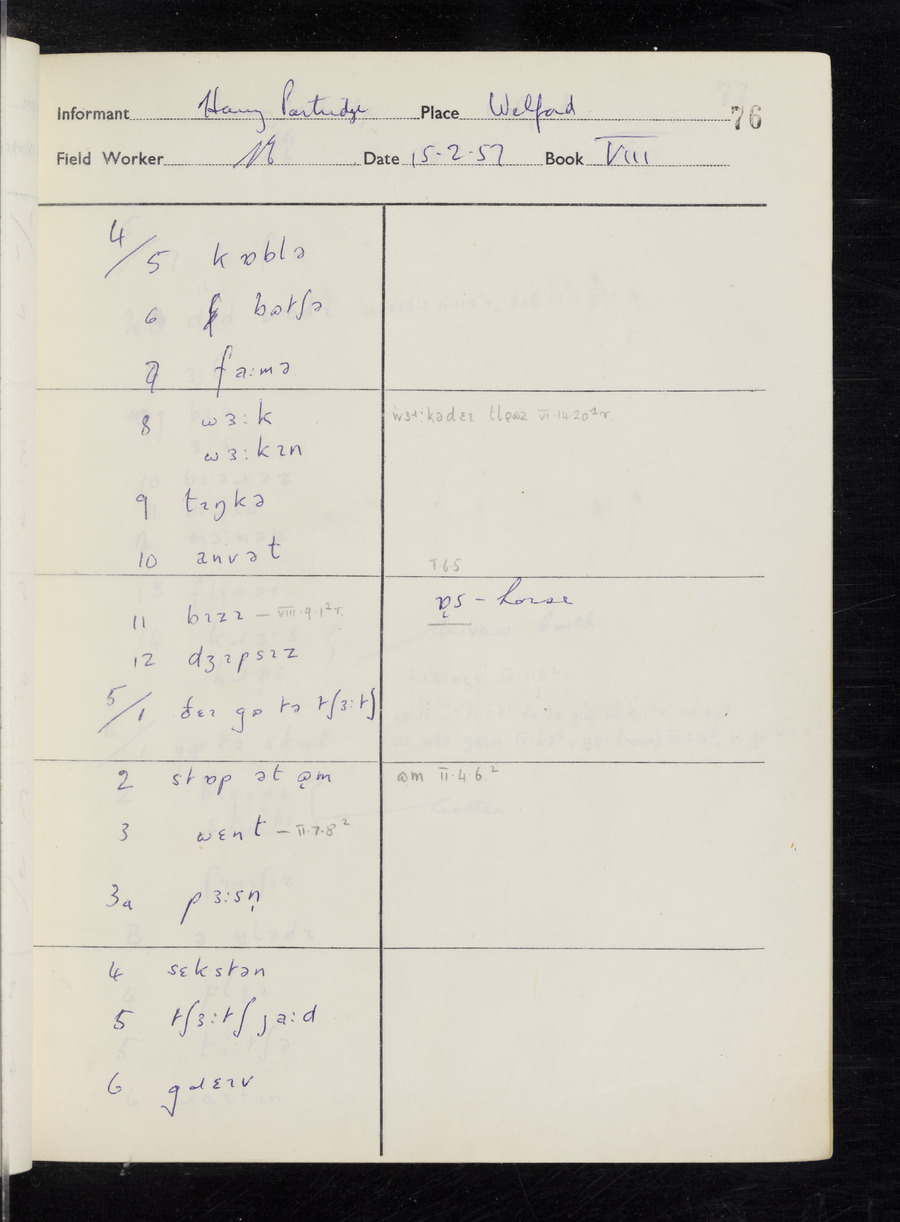 Informant Harry Partridge Place Welford 76
Field Worker Date 15-2-57 Book VIII
4/5 kɒblə
6 bʊtʃə
7 fa:mə
8 wɜ:k
wɜ:kɪn
9 tɪŋkə
10 anvət T65
11 bɪzɪ — VIII·9·1²r. ɒ̜s - horse
12 dʒɪpsɪz
5/1 ðɛɪ gʊ tə tʃɜ:tʃ
2 stɒp ət ʊ̜m ʊm II·4·6.²
3 wɛnt — II·7·8²
3a pɜ:sn̩
4 sɛkstən
5 tʃɜ:tʃ ja:d
6 gɹɛɪv